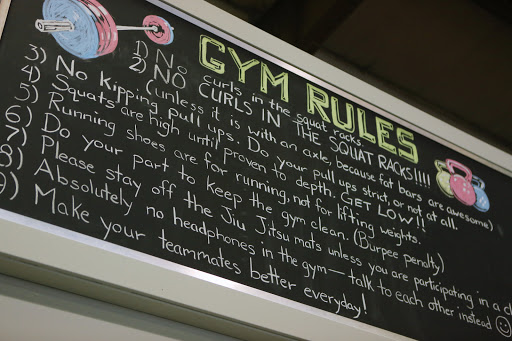 GYM RULES
1) No curls in the squat racks.
2) NO CURLS IN THE SQUAT RACKS!!!!
(unless it is with an axle, because fat bars are awesome)
3) No Kipping pull ups. Do your pull ups strict, or not at all.
4) Squats are high until proven to depth. GET LOW!!
5) Running shoes are for running, not for lifting weights.
6) Do your part to keep the gym clean. (Burpee penalty)
7) Please stay off the Jiu Jitsu mats unless you are participating in a
8) Absolutely no headphones in the gym — talk to each other instead ☺
9) Make your teammates better everyday!